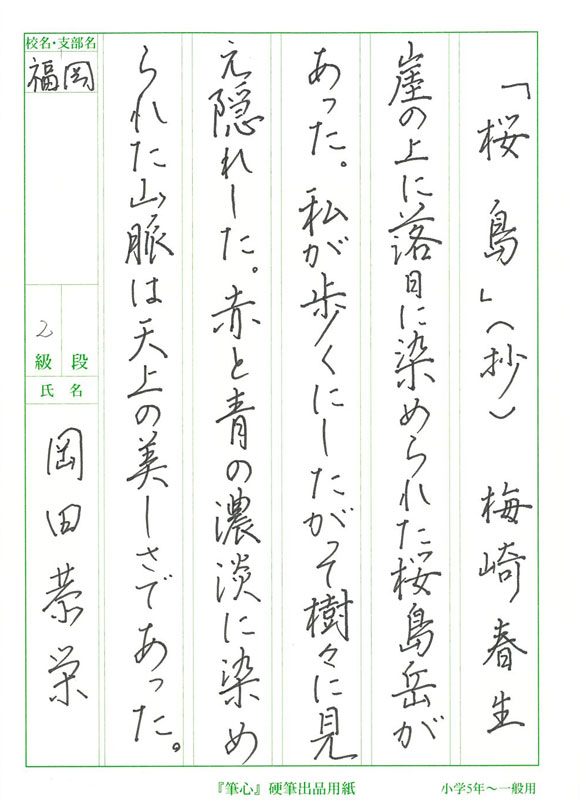 「桜 島」(抄) 梅崎春生
崖の上に落日に染められた桜島岳が
あった。私が歩くにしたがって樹々に見
え隠れした。赤と青の濃淡に染め
られた山脈は天上の美しさであった。
校名・支部名
福岡
段
2級
氏名
岡田恭栄
『筆心』硬筆出品用紙
小学5年~一般用